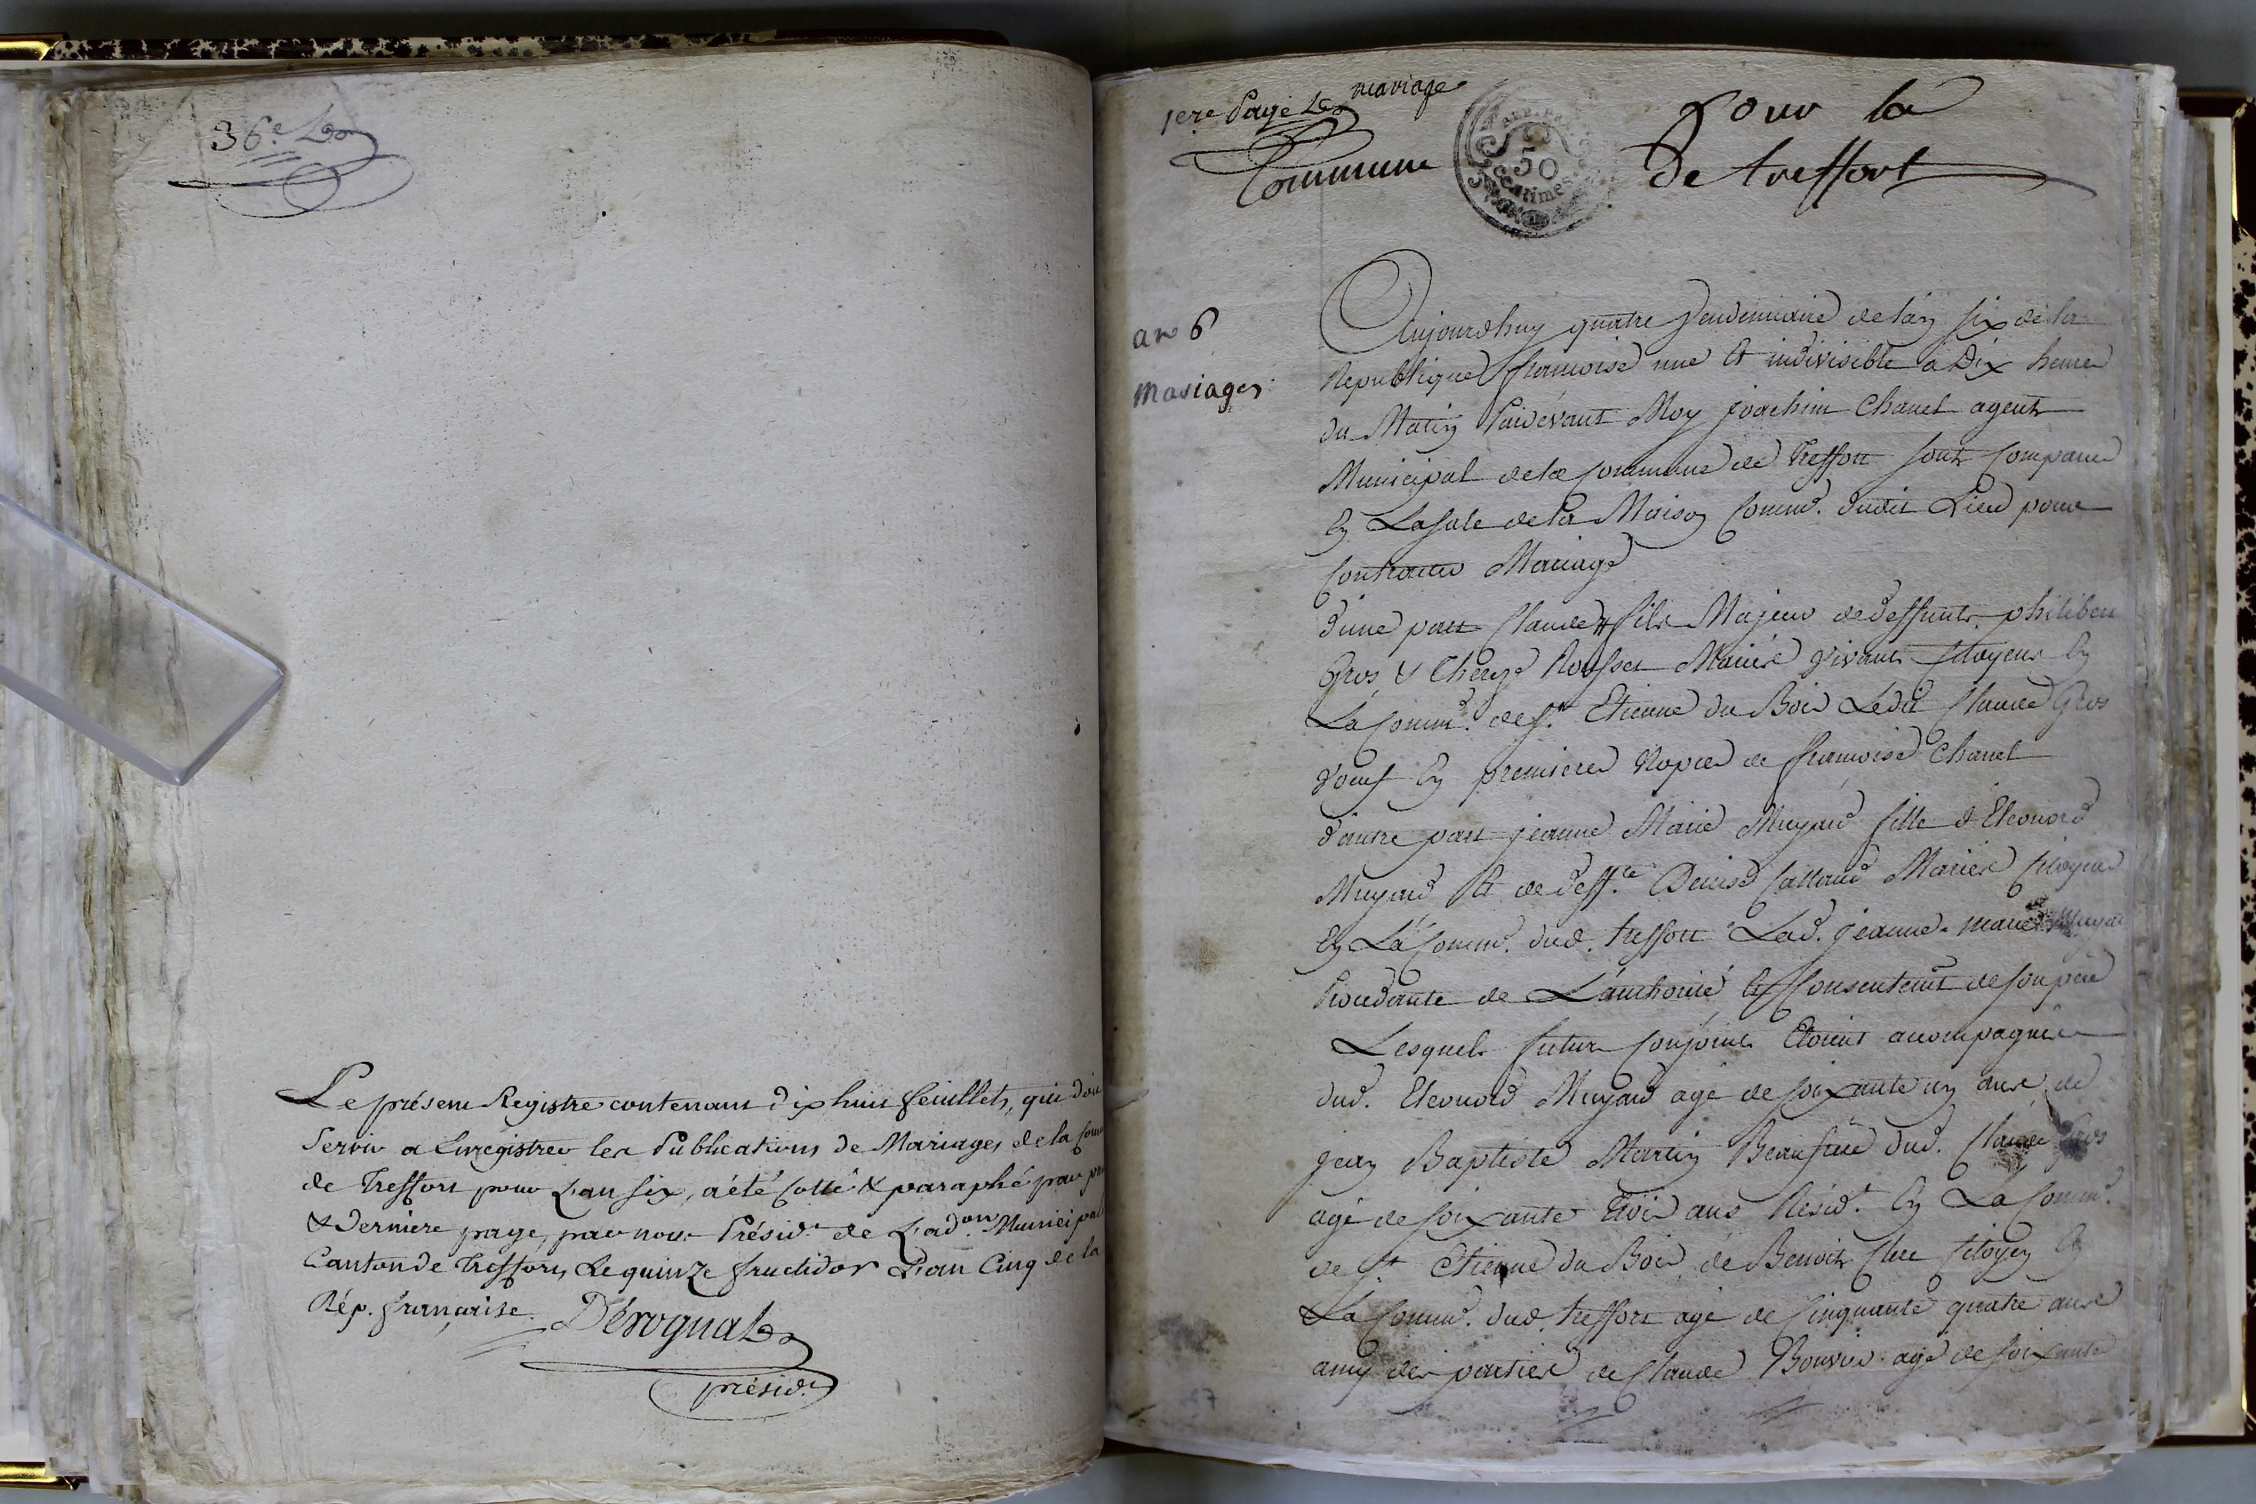 36e
Le présent Registre contenant dix huit feuillets, qui doit
Servir a Enregistrer les Publications de Mariages de la Com
de Treffort pour L'an six, a été Cotté & paraphé par
& derniere page, par nous Présidt de L'adon Municipal
Canton de Treffort, Le quinze fructidor L'an Cinq de la
Rép. française.
Dérognat
présidt
1ere Page
mariage
Pour la
Commune
50
centimes
De treffort
an 6
Mariages
Aujourdhuy quatre Vendemiaire de lan six de la
Republique francoise une Et indivisible a Dix heures
du Matin Pardevant Moy joachim Chanel agent
Municipal de la Commune de Treffort sont Comparus
En La sale de la Maison Comme. dudit Lieu pour
Contracter Mariage
d'une part Claude fils Majeur de deffunts philibert
Gros & Therese Rousset Mariés vivants Citoyens En
La Comme. de St. Etienne du Bois Ledit Claude Gros
Veuf En premieres Nopces de francoise Chanel
d'autre part jeanne Marie Muyard fille d'Eleonord
Muyard Et de deffte. Denise Mariés Citoyens
En La Comme. dud. treffort Lad. jeanne-marie Muyard
Procedante de L'authorité Et Consentemt de son pere
Lesquels futurs Conjoints Etoient acompagnés
dud. Eleonord Muyard agé de soixante un ans de
jean Baptiste Martin Beaufrere dud. Claude Gros
agé de soixante trois ans Résidt. En La Comme.
de St Etienne du Bois de Benoit Citoyen En
La Comme. dud. treffort agé de Cinquante quatre ans
amy des parties de Claude Bouvier agé de soixante